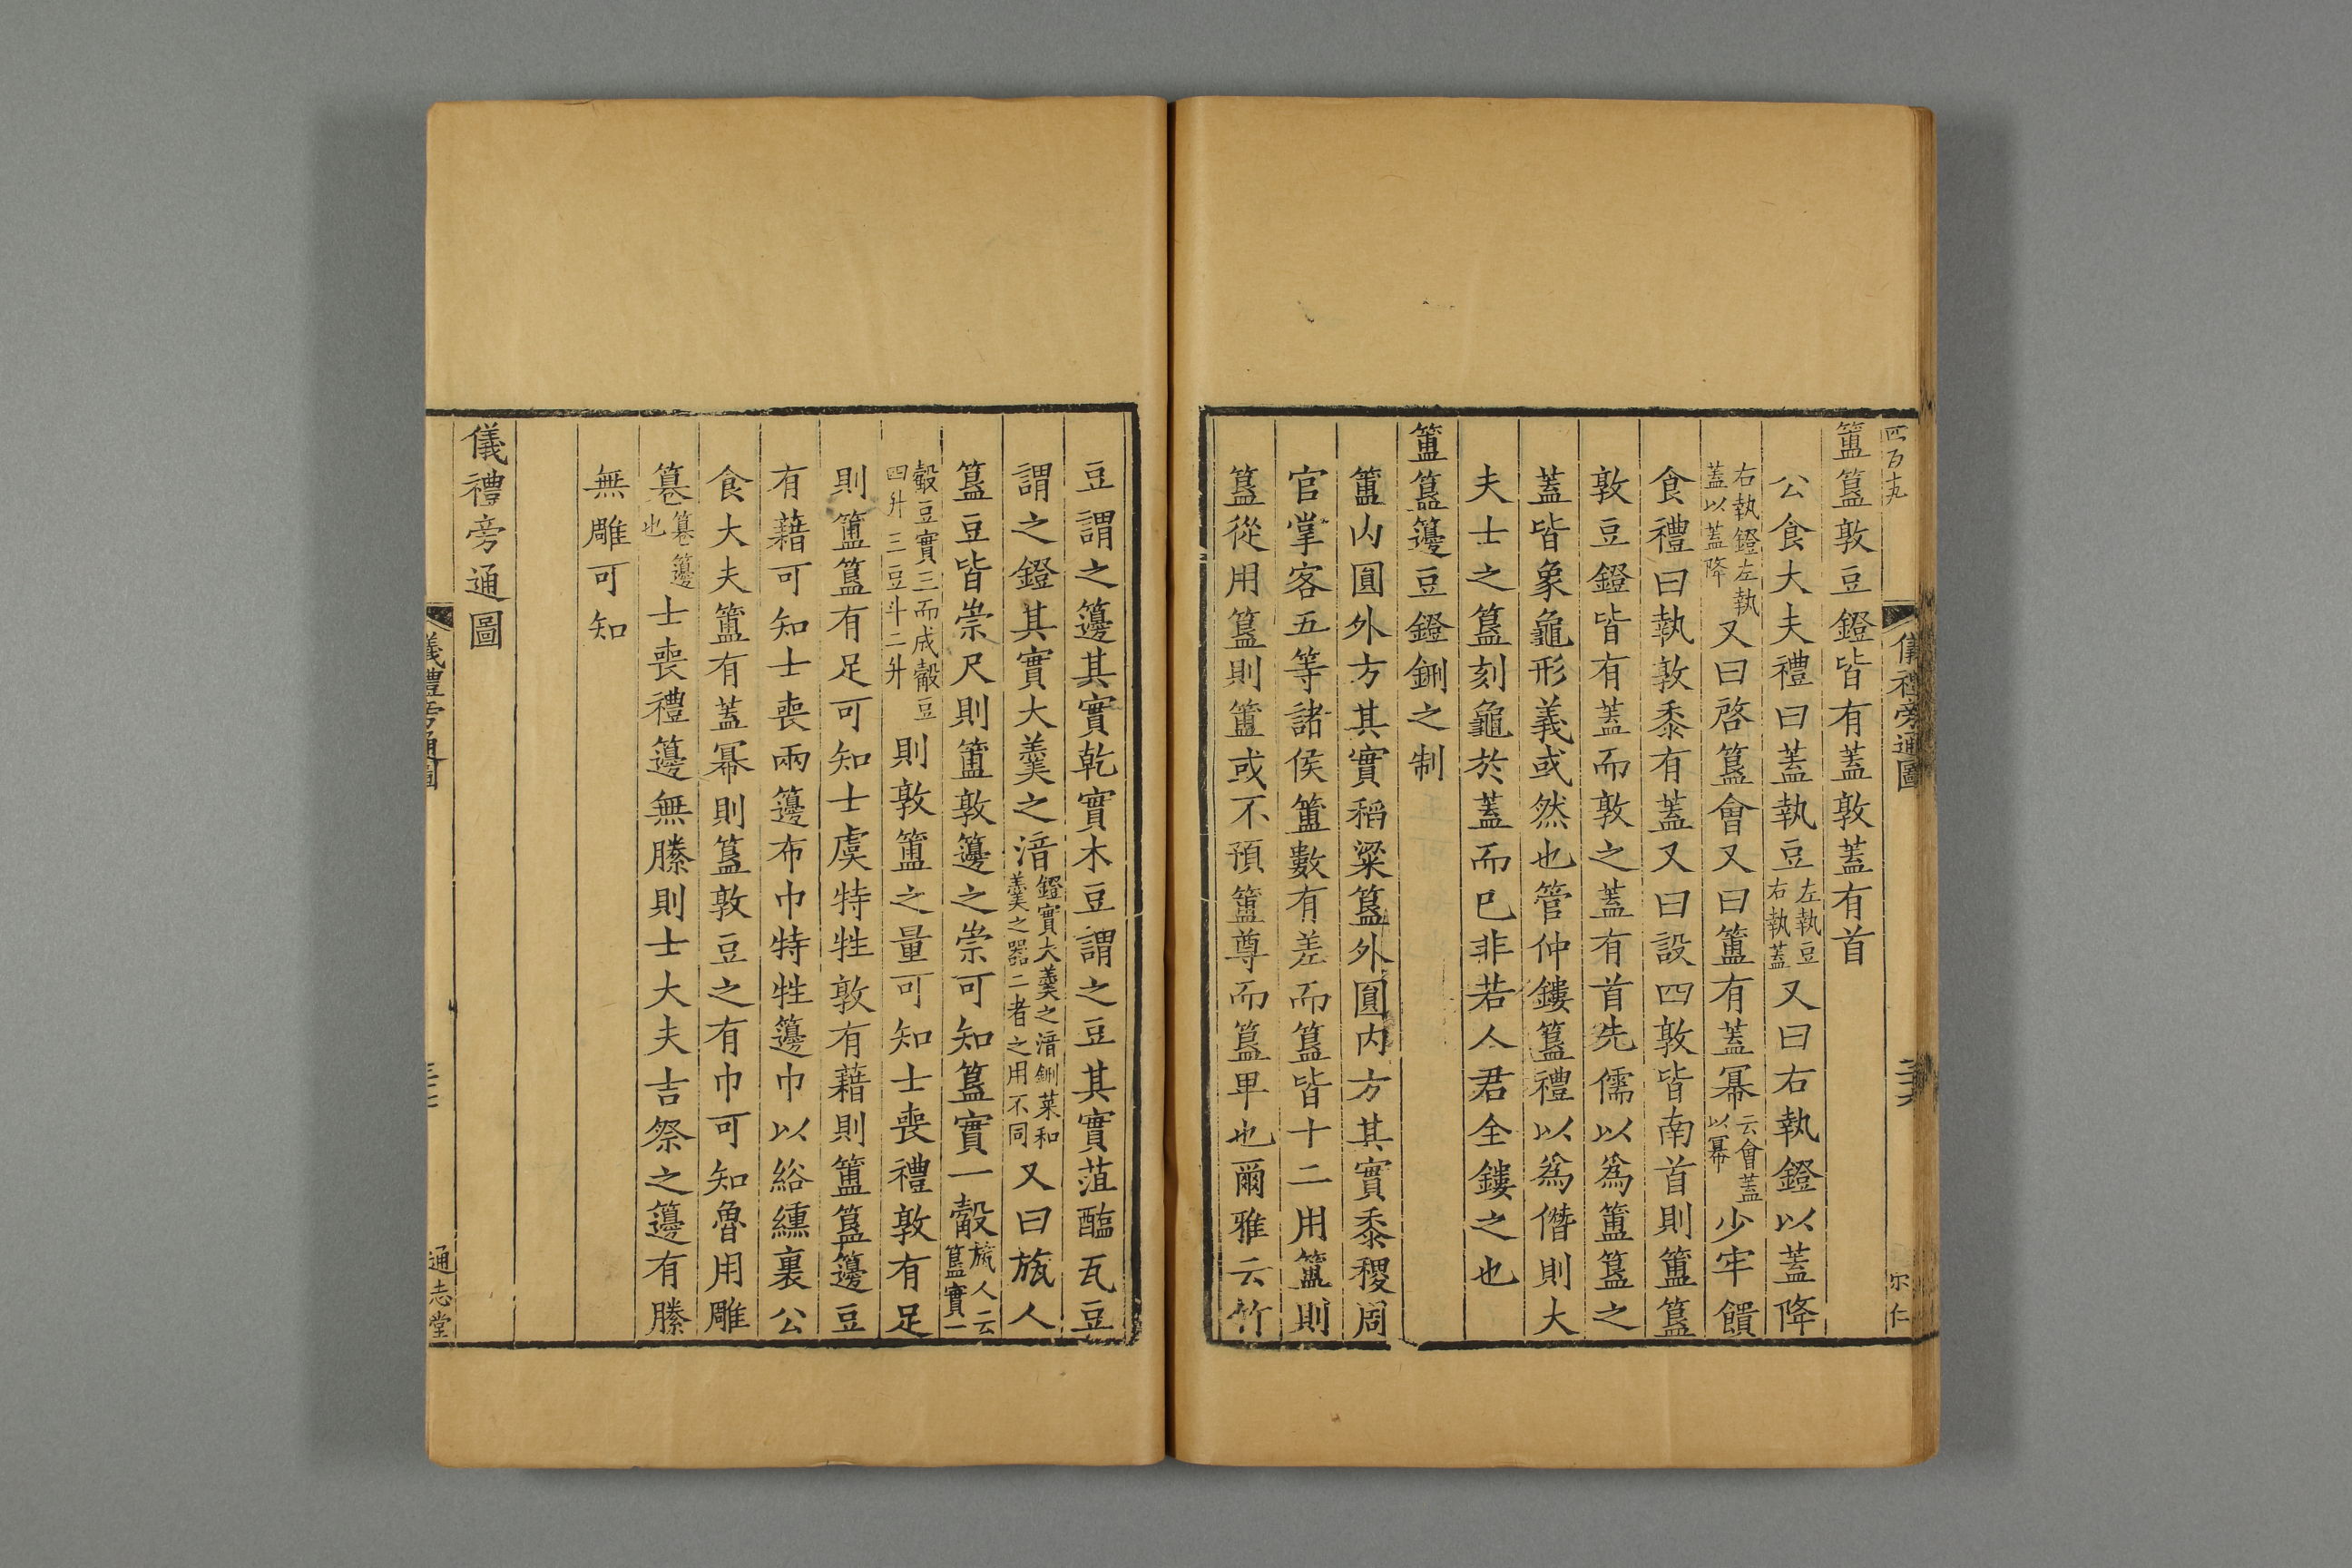 四百十九
儀禮旁通圖
宗仁
簠簋敦豆鐙皆有蓋敦蓋有首
公食大夫禮曰蓋執豆左執豆右執蓋又曰右執鐙以蓋降
右執鐙左執蓋以蓋降又曰啓簋會又曰簠有蓋冪云會蓋以冪少牢饋
食禮曰執敦黍有蓋又曰設四敦皆南首則簠簋
敦豆鐙皆有蓋而敦之蓋有首先儒以爲簠簋之
蓋皆象龜形義或然也管仲鏤簋禮以爲僭則大
夫士之簋刻龜於蓋而已非若人君全鏤之也
簠簋籩豆鐙鉶之制
簠内圓外方其實稻粱簋外圓内方其實黍稷周
官掌客五等諸侯簠數有差而簋皆十二用簠則
簋從用簋則簠或不預簠尊而簋卑也爾雅云竹
豆謂之籩其實乾實木豆謂之豆其實菹醢瓦豆
謂之鐙其實大羹之湇鐙實大羹之湇鉶菜和羹之器二者之用不同又曰瓬人
簋豆皆崇尺則簠敦籩之崇可知簋實一觳瓬人云簋實一
觳豆實三而成觳豆四升三豆斗二升則敦簠之量可知士喪禮敦有足
則簠簋有足可知士虞特牲敦有藉則簠簋籩豆
有藉可知士喪兩籩布巾特牲籩巾以綌纁裏公
食大夫簠有蓋冪則簋敦豆之有巾可知魯用雕
篹篹籩也士喪禮籩無縢則士大夫吉祭之籩有縢
無雕可知
儀禮旁通圖
儀禮旁通圖
通志堂